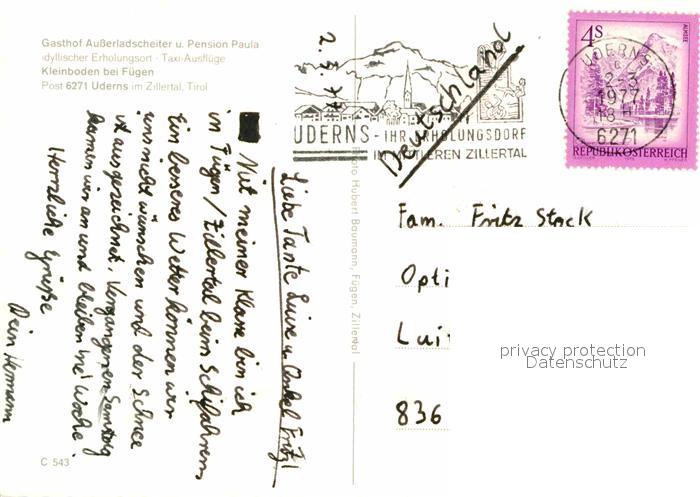 Gasthof Außerladscheiter u. Pension Paula
idyllischer Erholungsort · Taxi-Ausflüge
Kleinboden bei Fügen
Post 6271 Uderns im Zillertal, Tirol
2. 3. 77
Liebe Tante Luise u. Onkel Fritz!
Mit meiner Klasse bin ich
in Fügen/Zillertal beim Schifahren.
Ein besseres Wetter können wir
uns nicht wünschen und der Schnee
ist ausgezeichnet. Vergangenen Samstag
kamen wir an und bleiben 'ne Woche.
Herzliche Grüße
Dein Hermann
C 543
Foto Hubert Baumann, Fügen, Zillertal
UDERNS - IHR ERHOLUNGSDORF
IM MITTLEREN ZILLERTAL
Deutschland
4S
ALMSEE
REPUBLIK ÖSTERREICH
UDERNS
2.-3.
1977
18 H
6271
Fam. Fritz Stock
Opti
Lui
836
privacy protection
Datenschutz